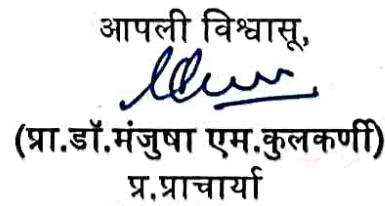 आपली विश्वासू,
(प्रा.डॉ.मंजुषा एम.कुलकर्णी)
प्र.प्राचार्या